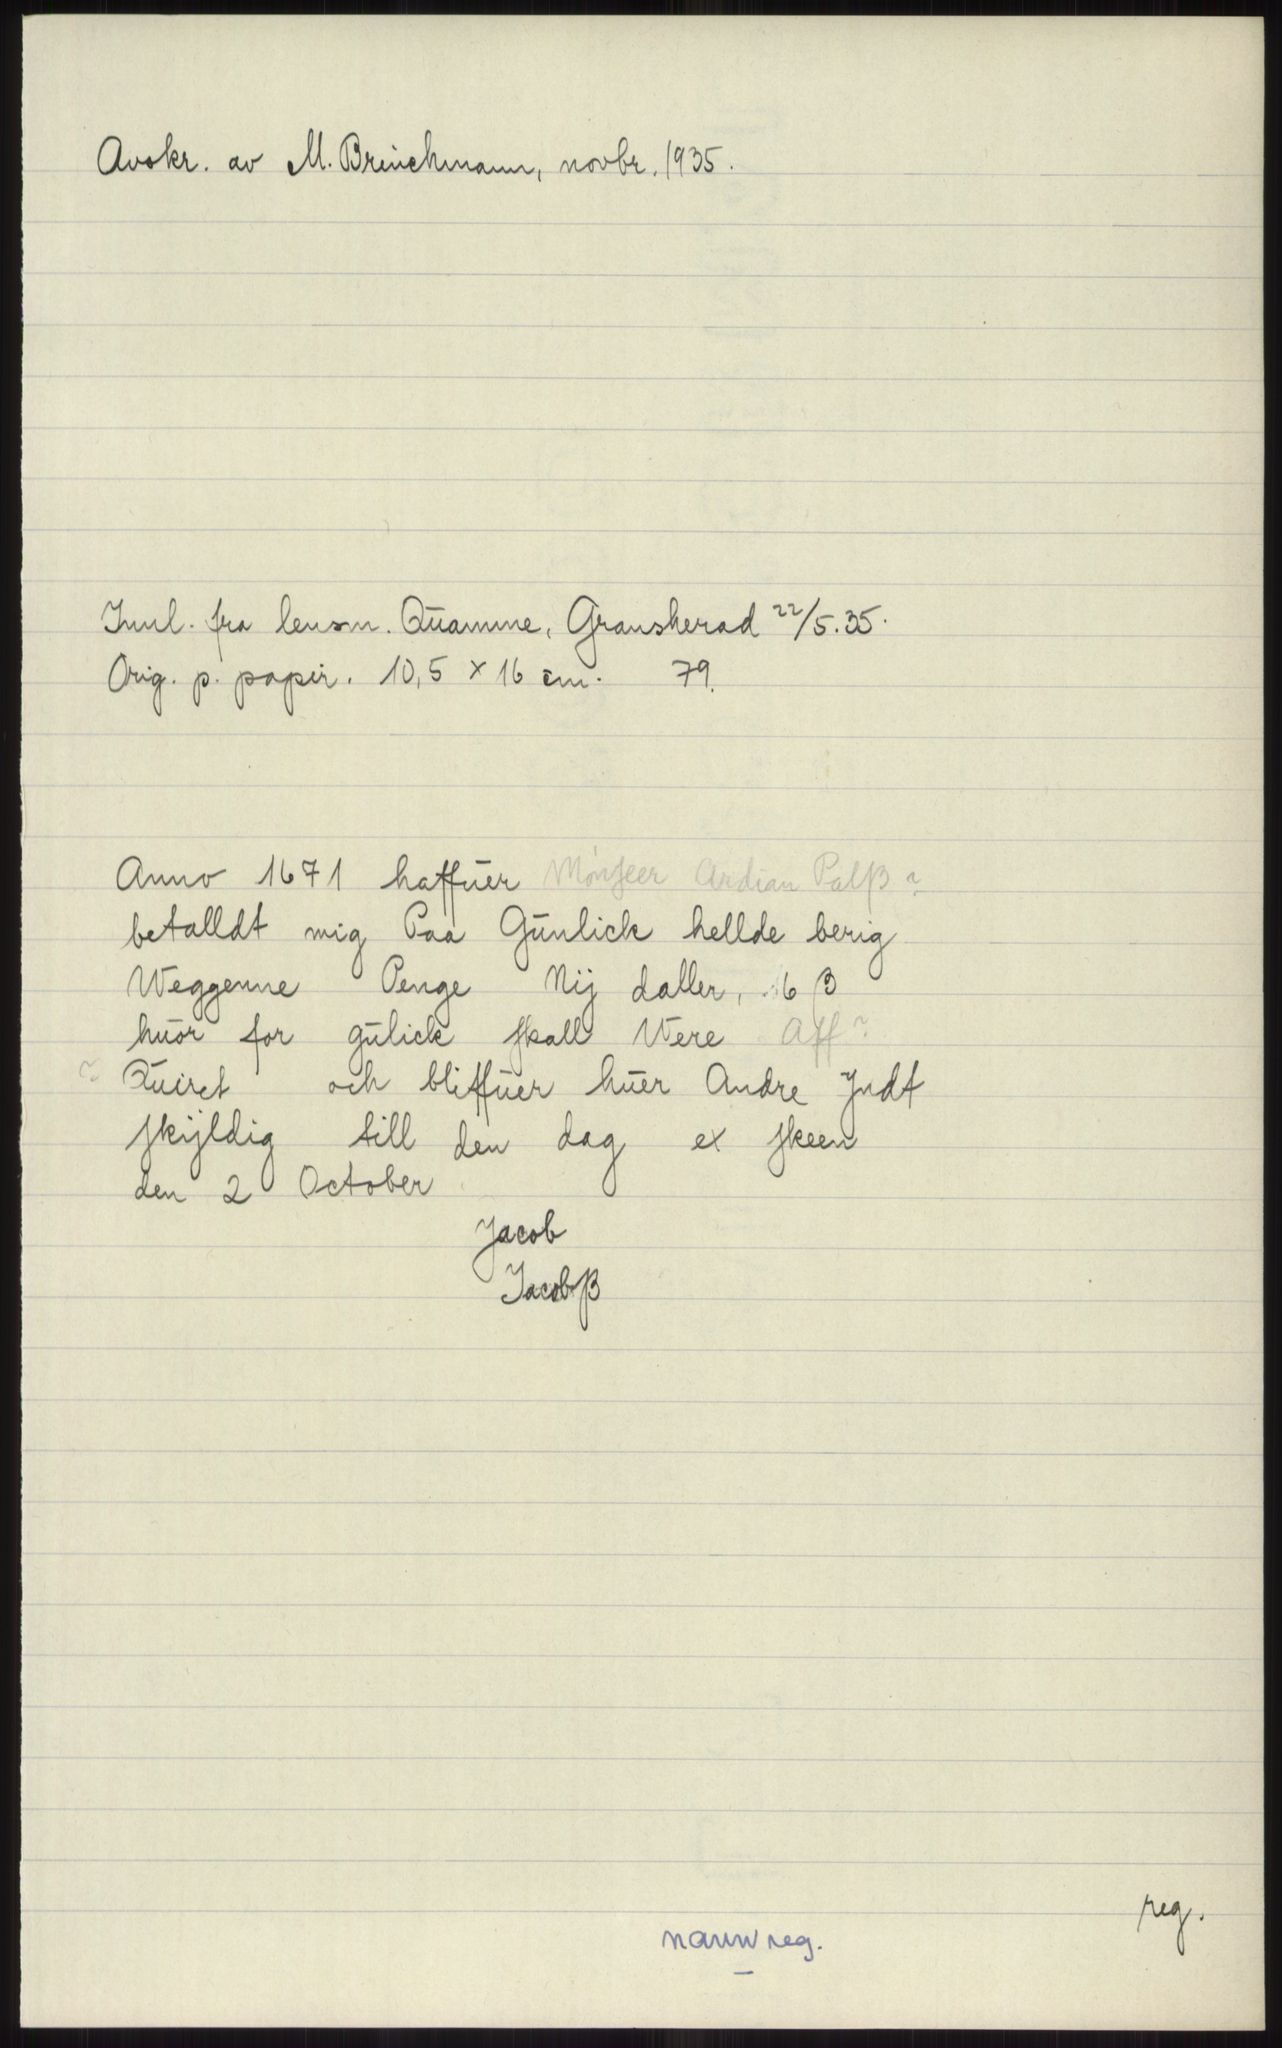 Avskr. av M. Brinchmann, novbr. 1935.
Innl. fra lensm. Quamme, Gransherad 22/5.35.
Orig. p. papir. 10,5 x 16 cm. 79.
Anno 1671 haffuer Monseer Ardian Palß ?
betalldt mig Paa Gunlick hellde berig
Weggenne Penge Nij daller, 16 β
huor for gulick skall Were Aff ?
? Quiret och bliffuer huer Andre Jndt
skijldig till den dag ex skeen
den 2 October
Jacob
Jacobß
reg.
navnreg.